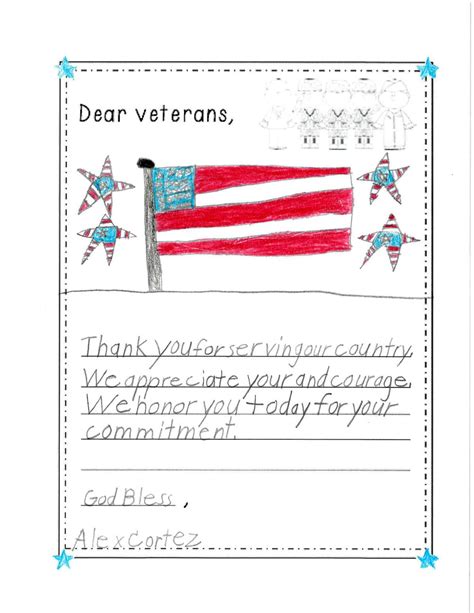 Dear veterans,
Thank you for serving our country.
We appreciate your and courage.
We honor you today for your
commitment.
God Bless,
Alex Cortez